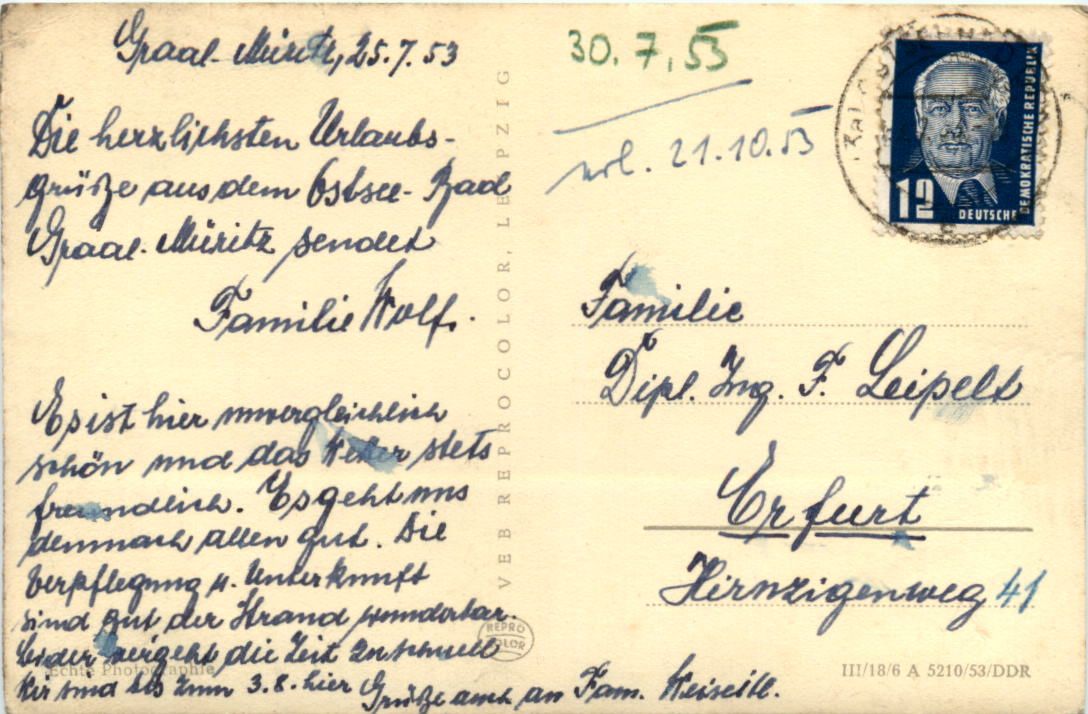 Graal-Müritz, 25.7.53
Die herzlichsten Urlaubs-
grüße aus dem Ostsee-Bad
Graal-Müritz sendet
Familie Wolf.
Es ist hier unvergleichlich
schön und das Wetter stets
freundlich. Es geht uns
demnach allen gut. Die
Verpflegung u. Unterkunft
sind gut der Strand wunderbar.
Leider vergeht die Zeit zu schnell
Wir sind bis zum 3.8. hier Grüße auch an Fam.
Echte Photographie
VEB REPROCOLOR, LEIPZIG
REPRO
COLOR
30.7.53
21.10.53
12
DEUTSCHE
DEMOKRATISCHE REPUBLIK
Familie
Dipl. Ing. F. Leipelt
Erfurt
Hirnzigenweg 41
III/18/6 A 5210/53/DDR